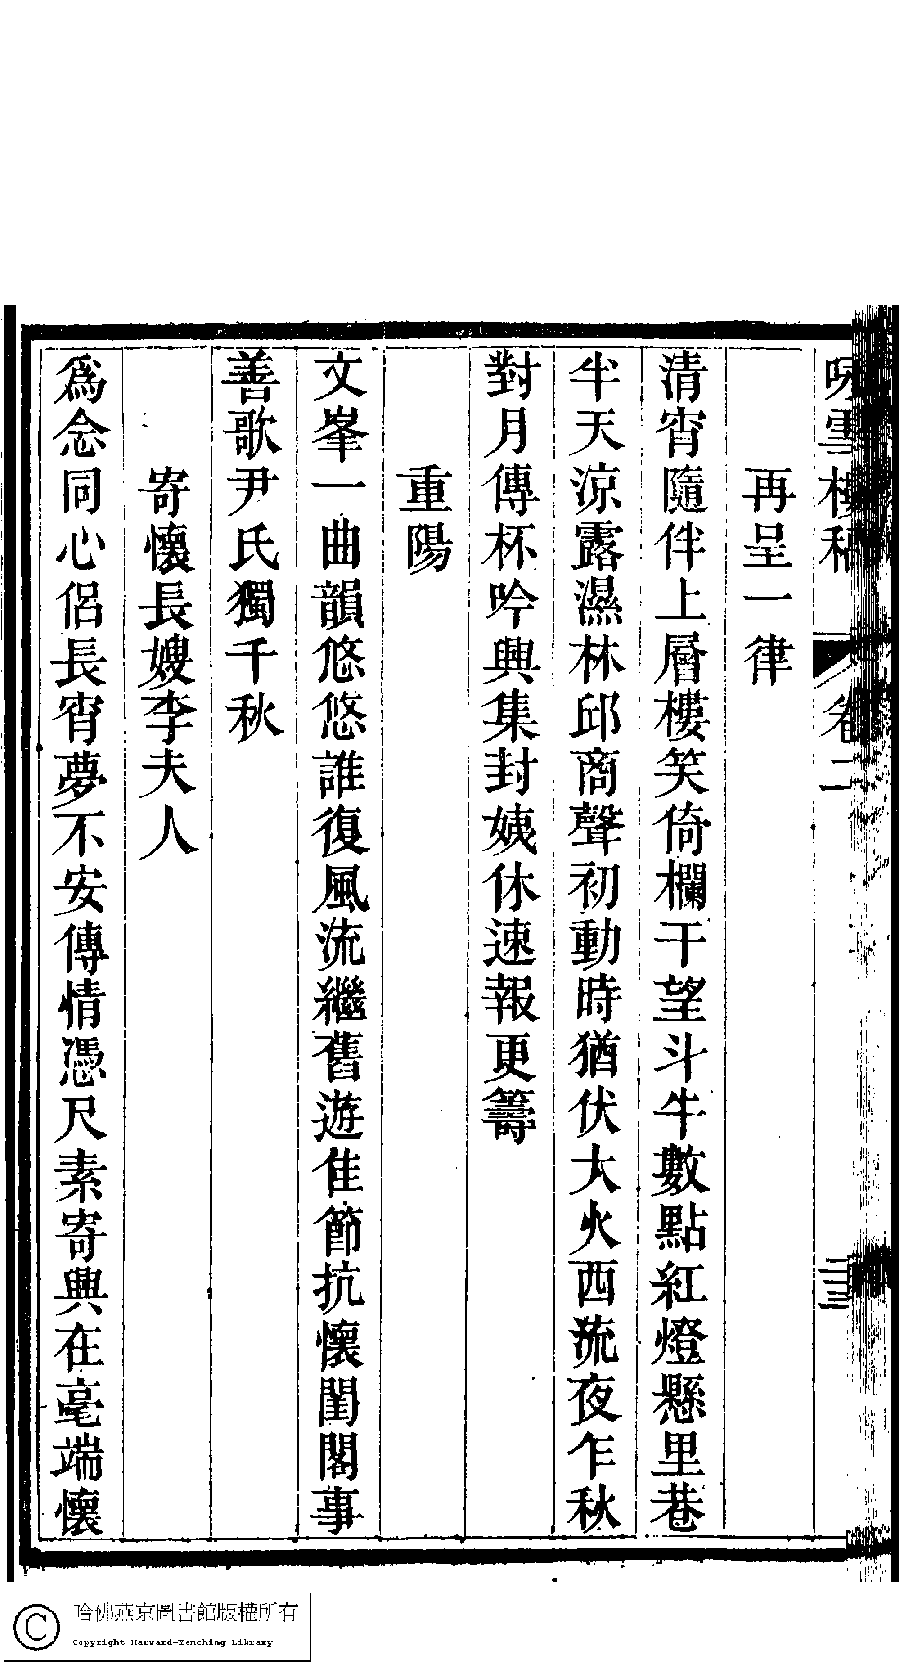 雪樓稿 卷二
再呈一律
清宵隨伴上層樓笑倚欄干望斗牛數點紅燈懸里巷
半天涼露濕林邱商聲初動時猶伏大火西流夜乍秋
對月傳杯吟興集封姨休速報更籌
重陽
文峯一曲韻悠悠誰復風流繼舊遊佳節抗懷閨閣事
善歌尹氏獨千秋
寄懷長嫂李夫人
為念同心侶長宵夢不安傳情憑尺素寄興在毫端懷
哈佛燕京圖書館版權所有
Copyright Harvard-Yenching Library